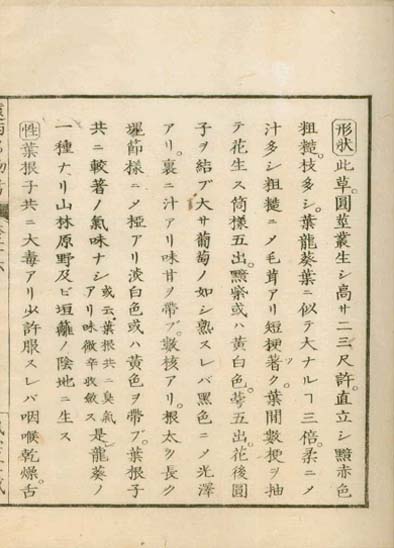 形狀此草。圓莖叢生シ高サ二三尺許。直立シ黯赤色
粗糙。枝多シ。葉龍葵葉ニ似テ大ナルヿ三倍。柔ニメ
汁多シ粗糙ニメ毛茸アリ短梗著ク。葉間數梗ヲ抽
テ花生ス筒樣五出。黯紫或ハ黃白色。萼五出花後圓
子ヲ結ブ大サ葡萄ノ如シ熟スレバ黑色ニメ光澤
アリ。裏ニ汁アリ味甘ヲ帶ブ。數核アリ。根太ク長ク
節樣ニメ椏アリ淡白色或ハ黃色ヲ帶ブ。葉根子
共ニ較著ノ氣味ナシ或云葉根共ニ臭氣アリ味微辛收斂ス是龍葵ノ
一種ナリ山林原野及ビ垣籬ノ陰地ニ生ス
性葉根子共ニ大毒アリ少許服スレバ咽喉乾燥。舌